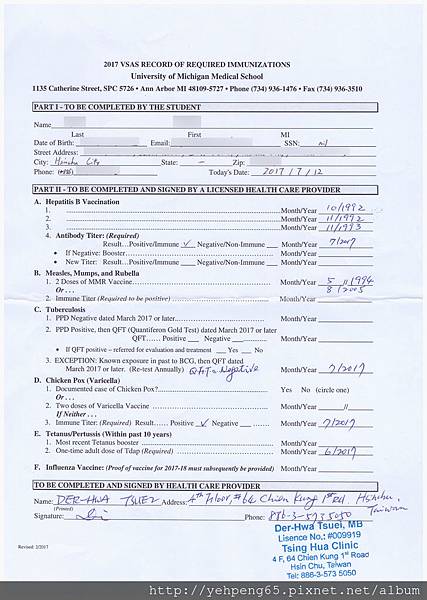 2017 VSAS RECORD OF REQUIRED IMMUNIZATIONS
University of Michigan Medical School
1135 Catherine Street, SPC 5726 • Ann Arbor MI 48109-5727 • Phone (734) 936-1476 • Fax (734) 936-3510
PART I - TO BE COMPLETED BY THE STUDENT
Name
Last First MI
Date of Birth: Email SSN: nil
Street Address:
City: Hsinchu City State: - Zip:
Phone: Today's Date: 2017 / 7 / 12
PART II - TO BE COMPLETED AND SIGNED BY A LICENSED HEALTH CARE PROVIDER
A. Hepatitis B Vaccination
1. Month/Year 10/1992
2. Month/Year 11/1992
3. Month/Year 11/1993
4. Antibody Titer: (Required)
Result…Positive/Immune ✓ Negative/Non-Immune Month/Year 7/2017
• If Negative: Booster Month/Year
• New Titer: Result…Positive/Immune Negative/Non-Immune Month/Year
B. Measles, Mumps, and Rubella
1. 2 Doses of MMR Vaccine Month/Year 5 // 1994
Or… 8 / 2005
2. Immune Titer (Required to be positive) Month/Year
C. Tuberculosis
1. PPD Negative dated March 2017 or later Month/Year
2. PPD Positive, then QFT (Quantiferon Gold Test) dated March 2017 or later
QFT…… Positive Negative Month/Year
• If QFT positive – referred for evaluation and treatment Yes No
3. EXCEPTION: Known exposure in past to BCG, then QFT dated
March 2017 or later. (Re-test Annually) QFT = Negative Month/Year 7/2017
D. Chicken Pox (Varicella)
1. Documented case of Chicken Pox? Yes No (circle one)
Or…
2. Two doses of Varicella Vaccine Month/Year //
If Neither …
3. Immune Titer: (Required) Result…Positive ✓ Negative Month/Year 7/2017
E. Tetanus/Pertussis (Within past 10 years)
1. Most recent Tetanus booster Month/Year
2. One-time adult dose of Tdap (Required) Month/Year 6/2017
F. Influenza Vaccine: (Proof of vaccine for 2017-18 must subsequently be provided) Month/Year
TO BE COMPLETED AND SIGNED BY HEALTH CARE PROVIDER
Name: DER-HWA TSUEI Address: 4th Floor, #64 Chien Kung 1st Rd. Hsinchu, Taiwan
(Printed)
Signature: Phone: 886-3-5735050
Der-Hwa Tsuei, MB
Lisence No.: #009919
Tsing Hua Clinic
4 F, 64 Chien Kung 1st Road
Hsin Chu, Taiwan
Tel: 888-3-573 5050
Revised: 2/2017
http://yehpeng65.pixnet.net/album